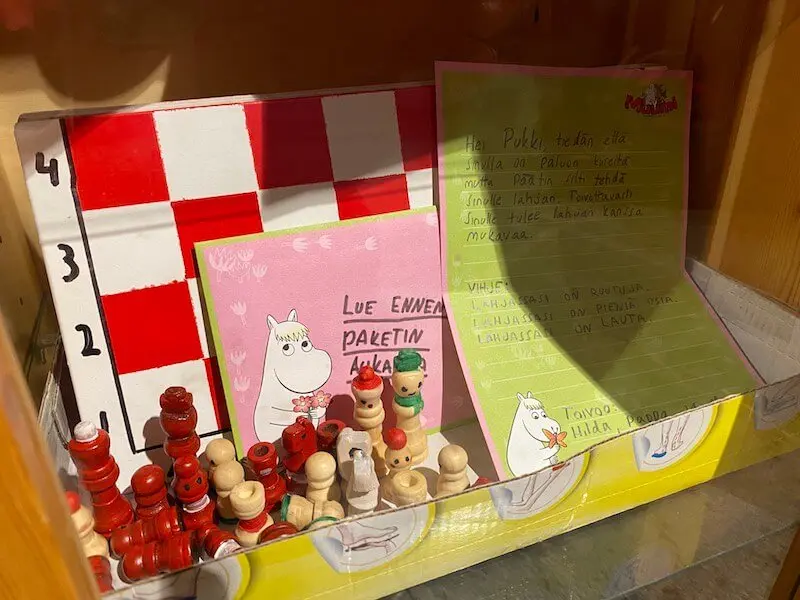 4
3
2
1
LUE ENNEN
PAKETIN
Hei Pukki, tiedän että
sinulla on paljon kiireitä
mutta päätin silti tehdä
sinulle lahjan. Toivottavasti
sinulle tulee lahjan kanssa
mukavaa.
VIHJE:
LAHJASSASI ON RUUTUJA.
LAHJASSASI ON PIENIÄ OSIA.
LAHJASSASI ON LAUTA.
Toivoo
Hilda,